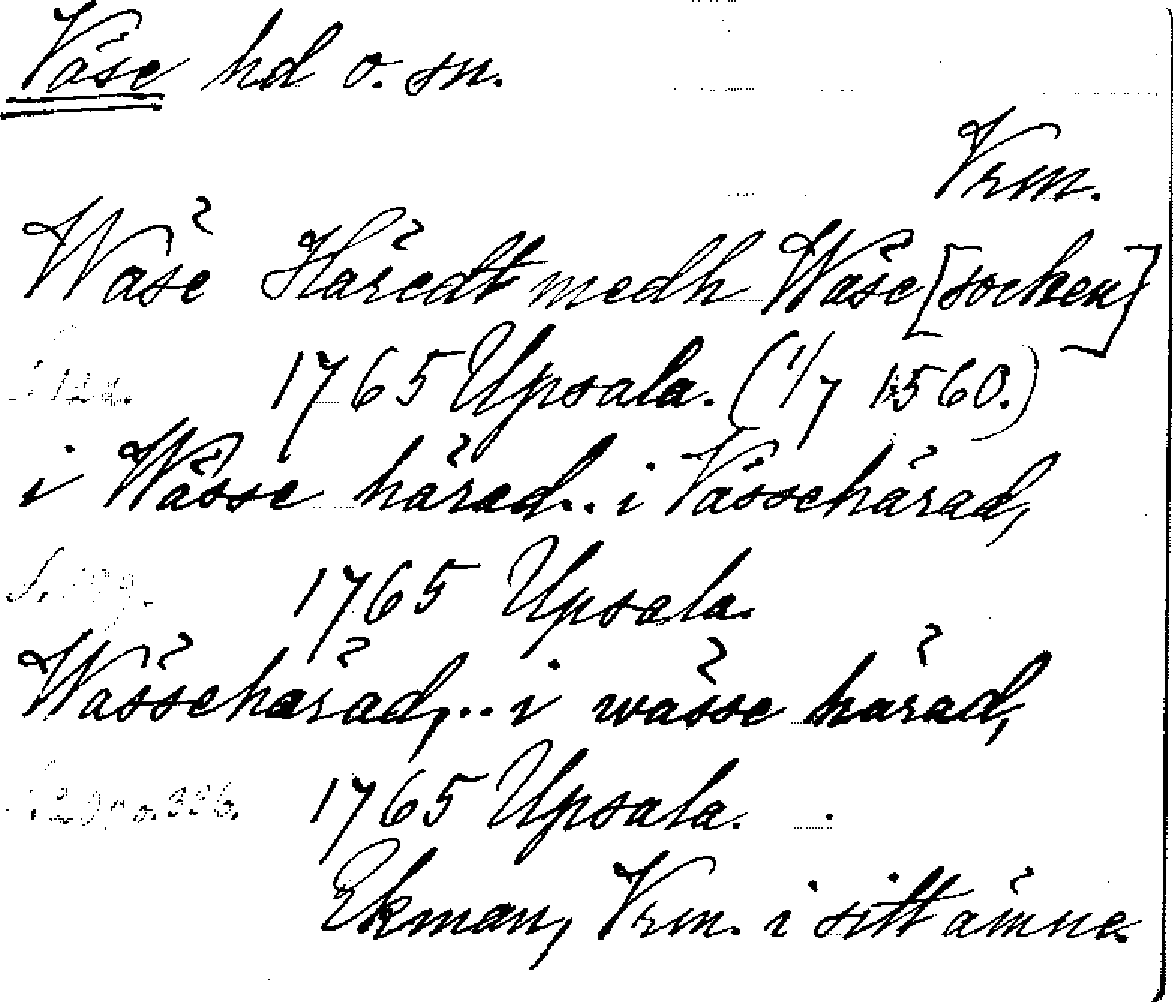 Väse hd o. sn.
Vrm.
Wäse Häredt medh Wäse [socken]
1765 Upsala. (1/7 1560.)
i Wässe härad.. i Vässehärad,
1765 Upsala.
Wässehärad,.. i wässe härad,
1765 Upsala.
Ekman, Vrm. i sitt ämne.